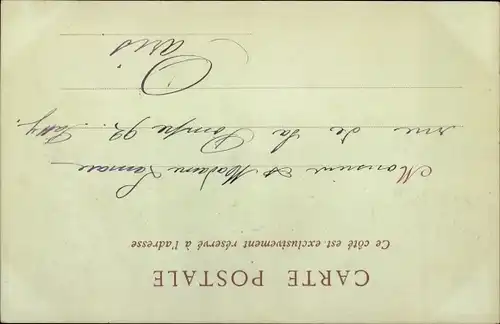 CARTE POSTALE
Ce côté est exclusivement réservé à l'adresse
Monsieur et Madame
rue de la Pompe 92. Passy.
Paris